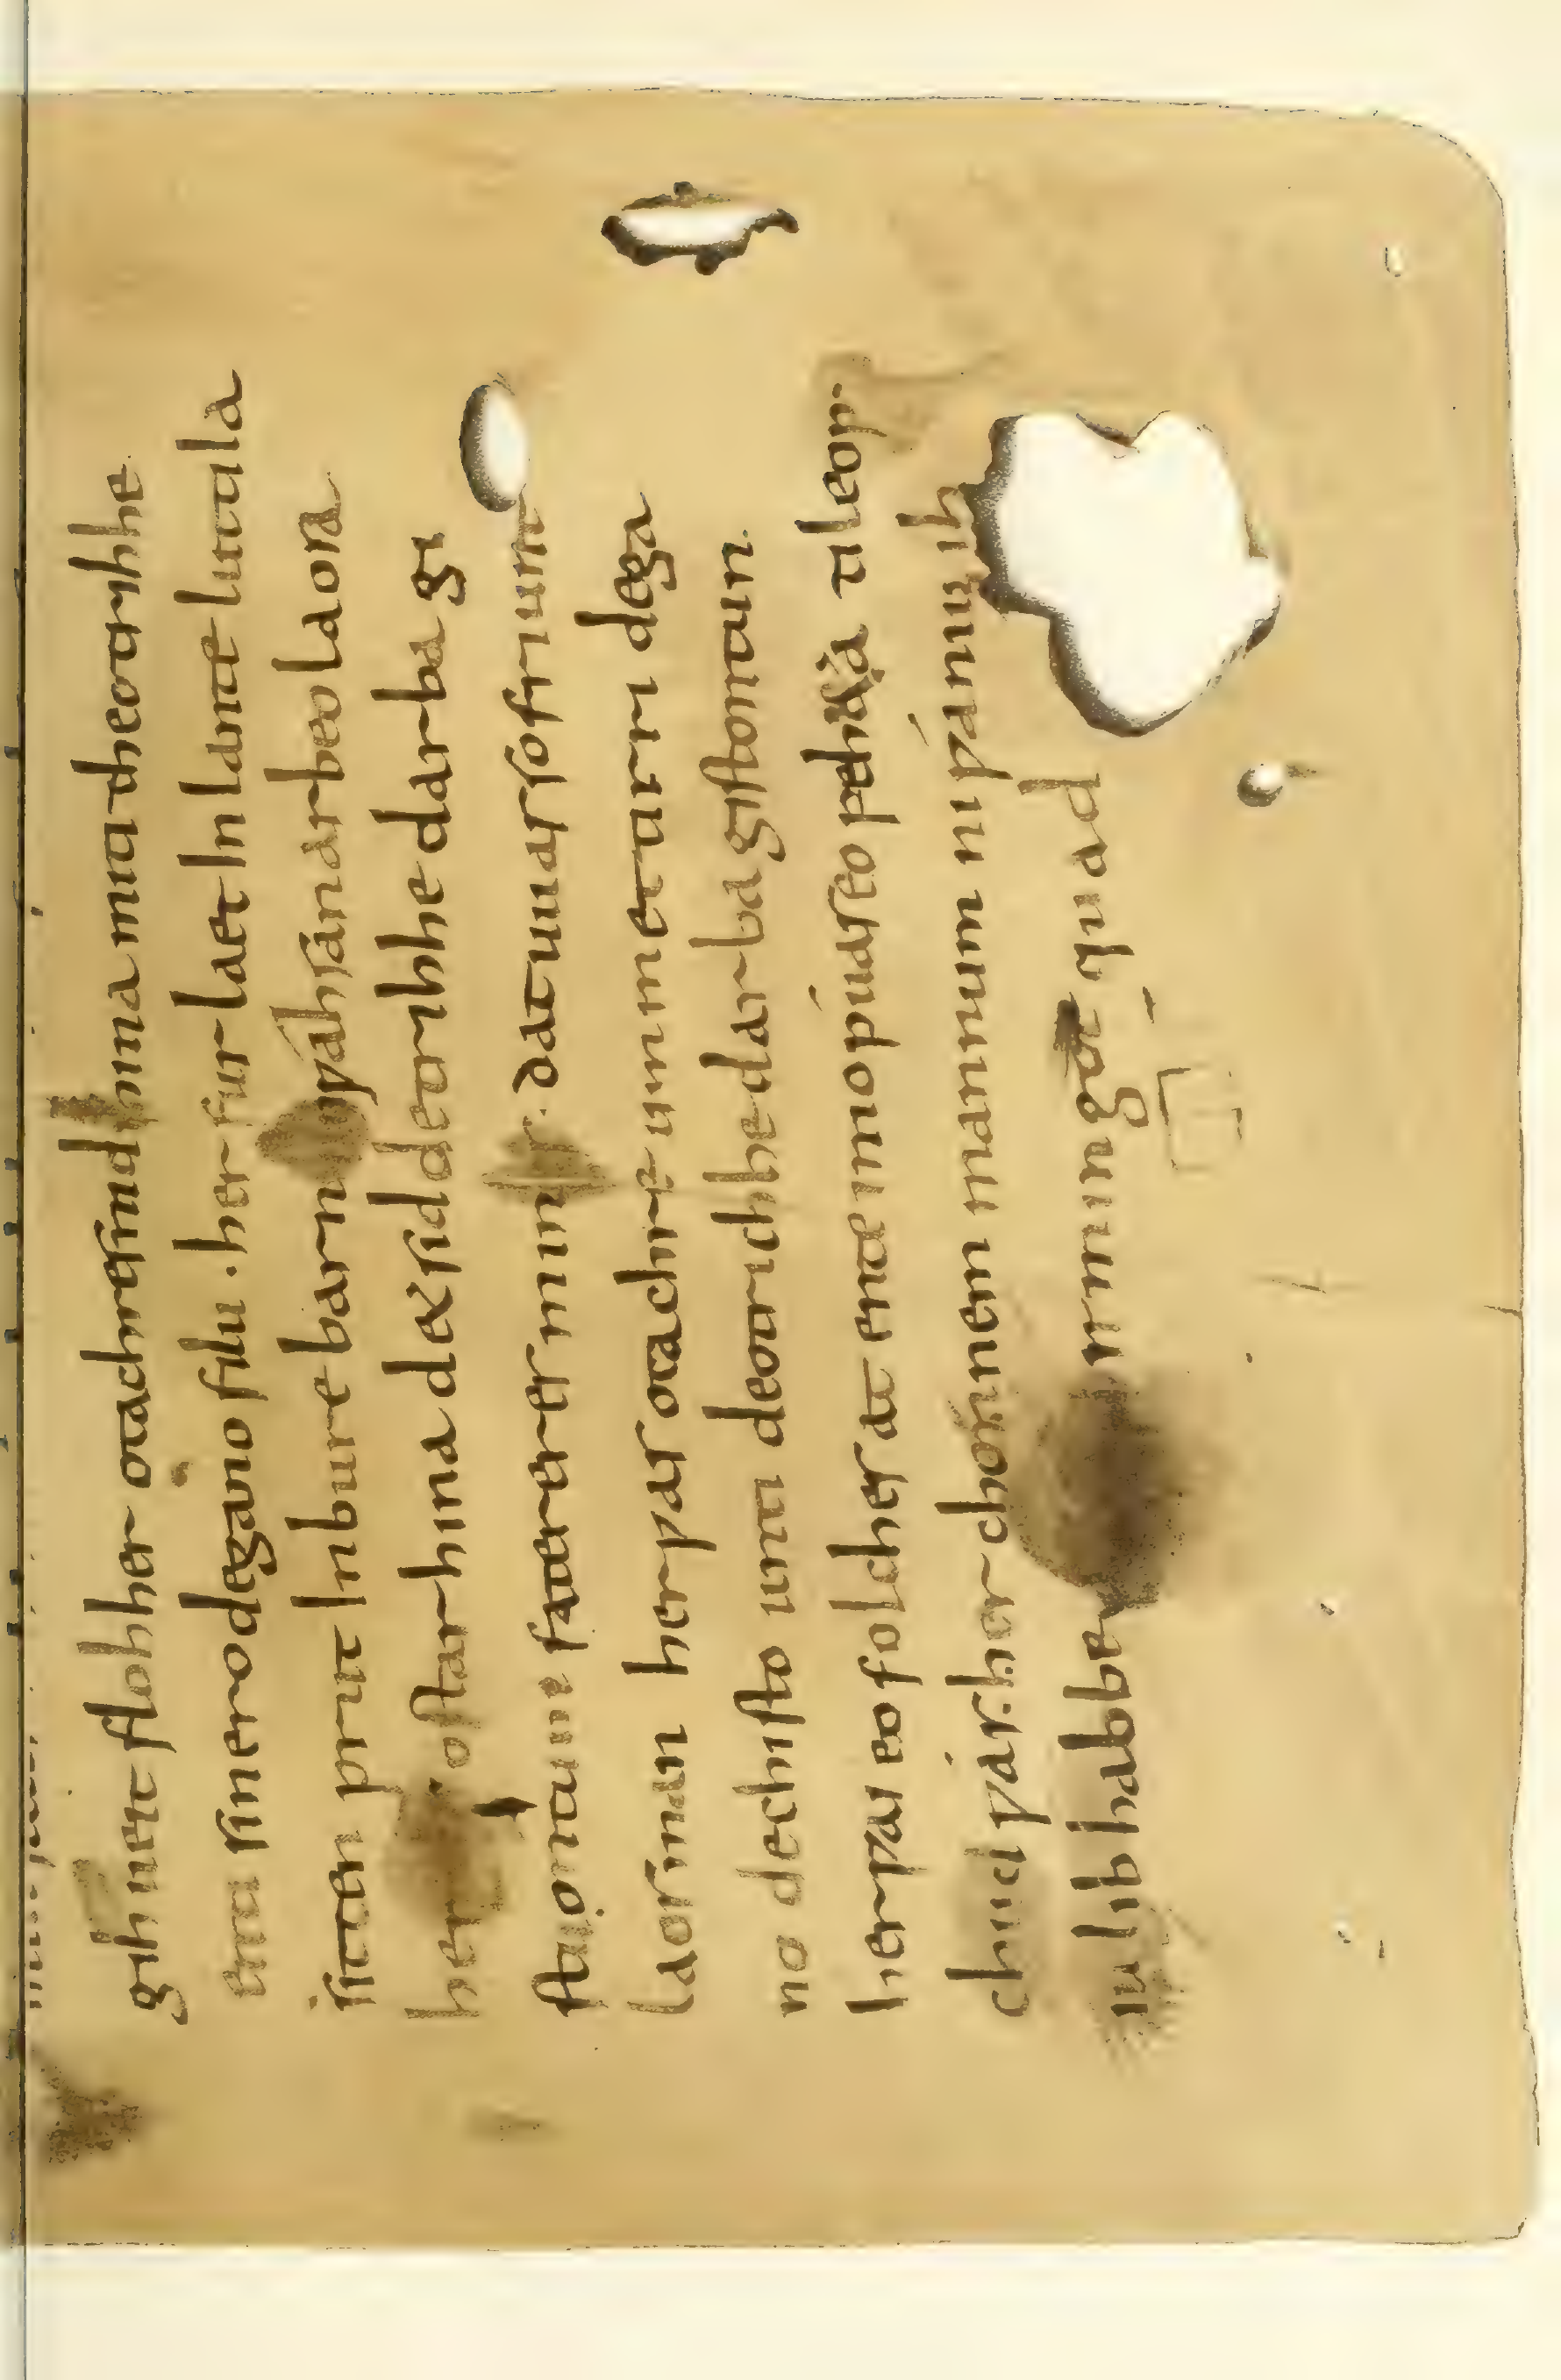 gihueit floh her otachres nid hina miti theotrihhe
enti sinero degano filu. her fur laet In lante luttila
sitten prut In bure barn unƿahsan arbeo laosa
her ostar hina d& sid detrihhe darba gi
stuontum fatereres mines. dat uuas so friunt
laos man her ƿas otachre ummettirri dega
no dechisto unti deotrichhe darba gistontun
her ƿas eo folches at ente imo ƿuas eo ƿeh&a ti leop.
chud ƿas her chonnem mannum ni ƿaniu ih
iu lib habbe irmingot quad